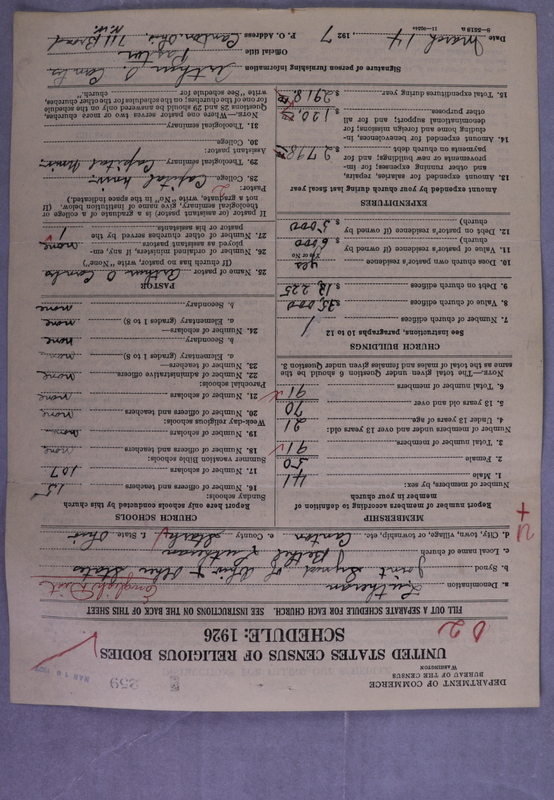 DEPARTMENT OF COMMERCE
BUREAU OF THE CENSUS
WASHINGTON
259
UNITED STATES CENSUS OF RELIGIOUS BODIES
SCHEDULE: 1926
FILL OUT A SEPARATE SCHEDULE FOR EACH CHURCH. SEE INSTRUCTIONS ON THE BACK OF THIS SHEET
a. Denomination Lutheran English Dist
b. Synod Joint Synod of Ohio & Other States
c. Local name of church Bethel Lutheran
d. City, town, village, or township, etc. Canton e. County Stark f. State Ohio
MEMBERSHIP
Report number of members according to definition of
member in your church
Number of members, by sex:
1. Male 41
2. Female 50
3. Total number of members. 91
Number of members under and over 13 years old:
4. Under 13 years of age. 21
5. 13 years old and over 70
6. Total number of members 91
NOTE—The total given under Question 6 should be the
same as the total of males and females given under Question 3.
CHURCH BUILDINGS
See instructions, paragraphs 10 to 12
7. Number of church edifices 1
8. Value of church edifices $ 35,000
9. Debt on church edifices $ 12,225
10. Does church own pastor's residence yes
(Yes or No)
11. Value of pastor's residence (if owned by
church) $ 6000
12. Debt on pastor's residence (if owned by
church) $ 5000
EXPENDITURES
Amount expended by your church during last fiscal year
13. Amount expended for salaries, repairs,
and other running expenses; for im-
provements or new buildings; and for
payments on church debt $ 2798
14. Amount expended for benevolences, in-
cluding home and foreign missions; for
denominational support; and for all
other purposes. $ 120
15. Total expenditures during year. $ 2918
CHURCH SCHOOLS
Report here only schools conducted by this church
Sunday schools:
16. Number of officers and teachers 15
17. Number of scholars 107
Summer vacation Bible schools:
18. Number of officers and teachers none
19. Number of scholars none
Week-day religious schools:
20. Number of officers and teachers none
21. Number of scholars none
Parochial schools:
22. Number of administrative officers none
23. Number of teachers—
a. Elementary (grades 1 to 8) none
b. Secondary none
24. Number of scholars—
a. Elementary (grades 1 to 8) none
b. Secondary none
PASTOR
25. Name of pastor Arthur O. Combs
(If church has no pastor, write "None")
26. Number of ordained ministers, if any, em-
ployed as assistant pastors none
27. Number of other churches served by the
pastor or his assistants. 1
If pastor (or assistant pastor) is a graduate of a college or
theological seminary, give name of institution below. (If
not a graduate, write "No" in the space indicated.)
Pastor:
28. College Capital Univ.
29. Theological seminary. Capital Univ.
Assistant pastor:
30. College
31. Theological seminary.
NOTE.—Where one pastor serves two or more churches,
Questions 28 and 29 should be answered only on the schedule
for one of the churches; on the schedule for the other churches,
write "See schedule for church."
Signature of person furnishing information Arthur O. Combs
Official title Pastor
Date March 14 1927 P. O. Address Canton Ohio